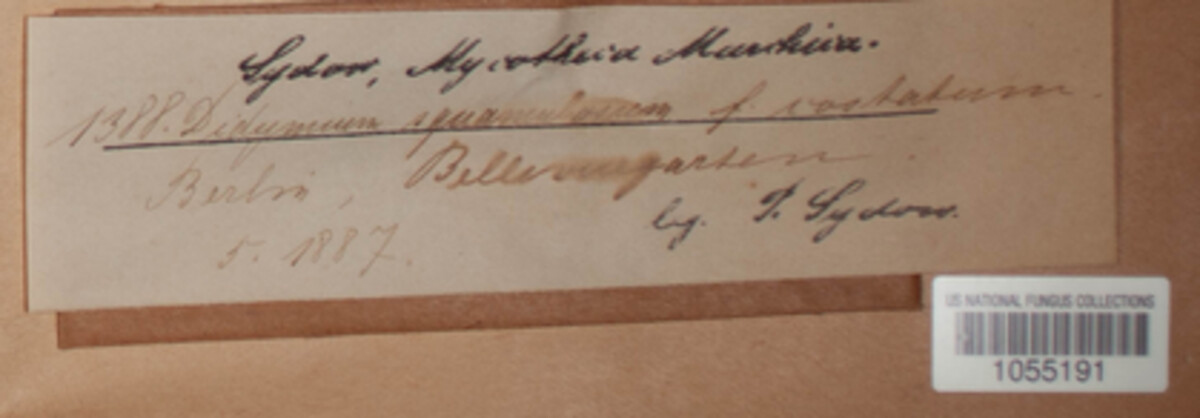 Sydow, Mycotheca Marchica.
1388. Didymium squamulosum f. costatum.
Berlin, Bellevuegarten.
leg. P. Sydow.
5. 1887.
US NATIONAL FUNGUS COLLECTIONS
1055191